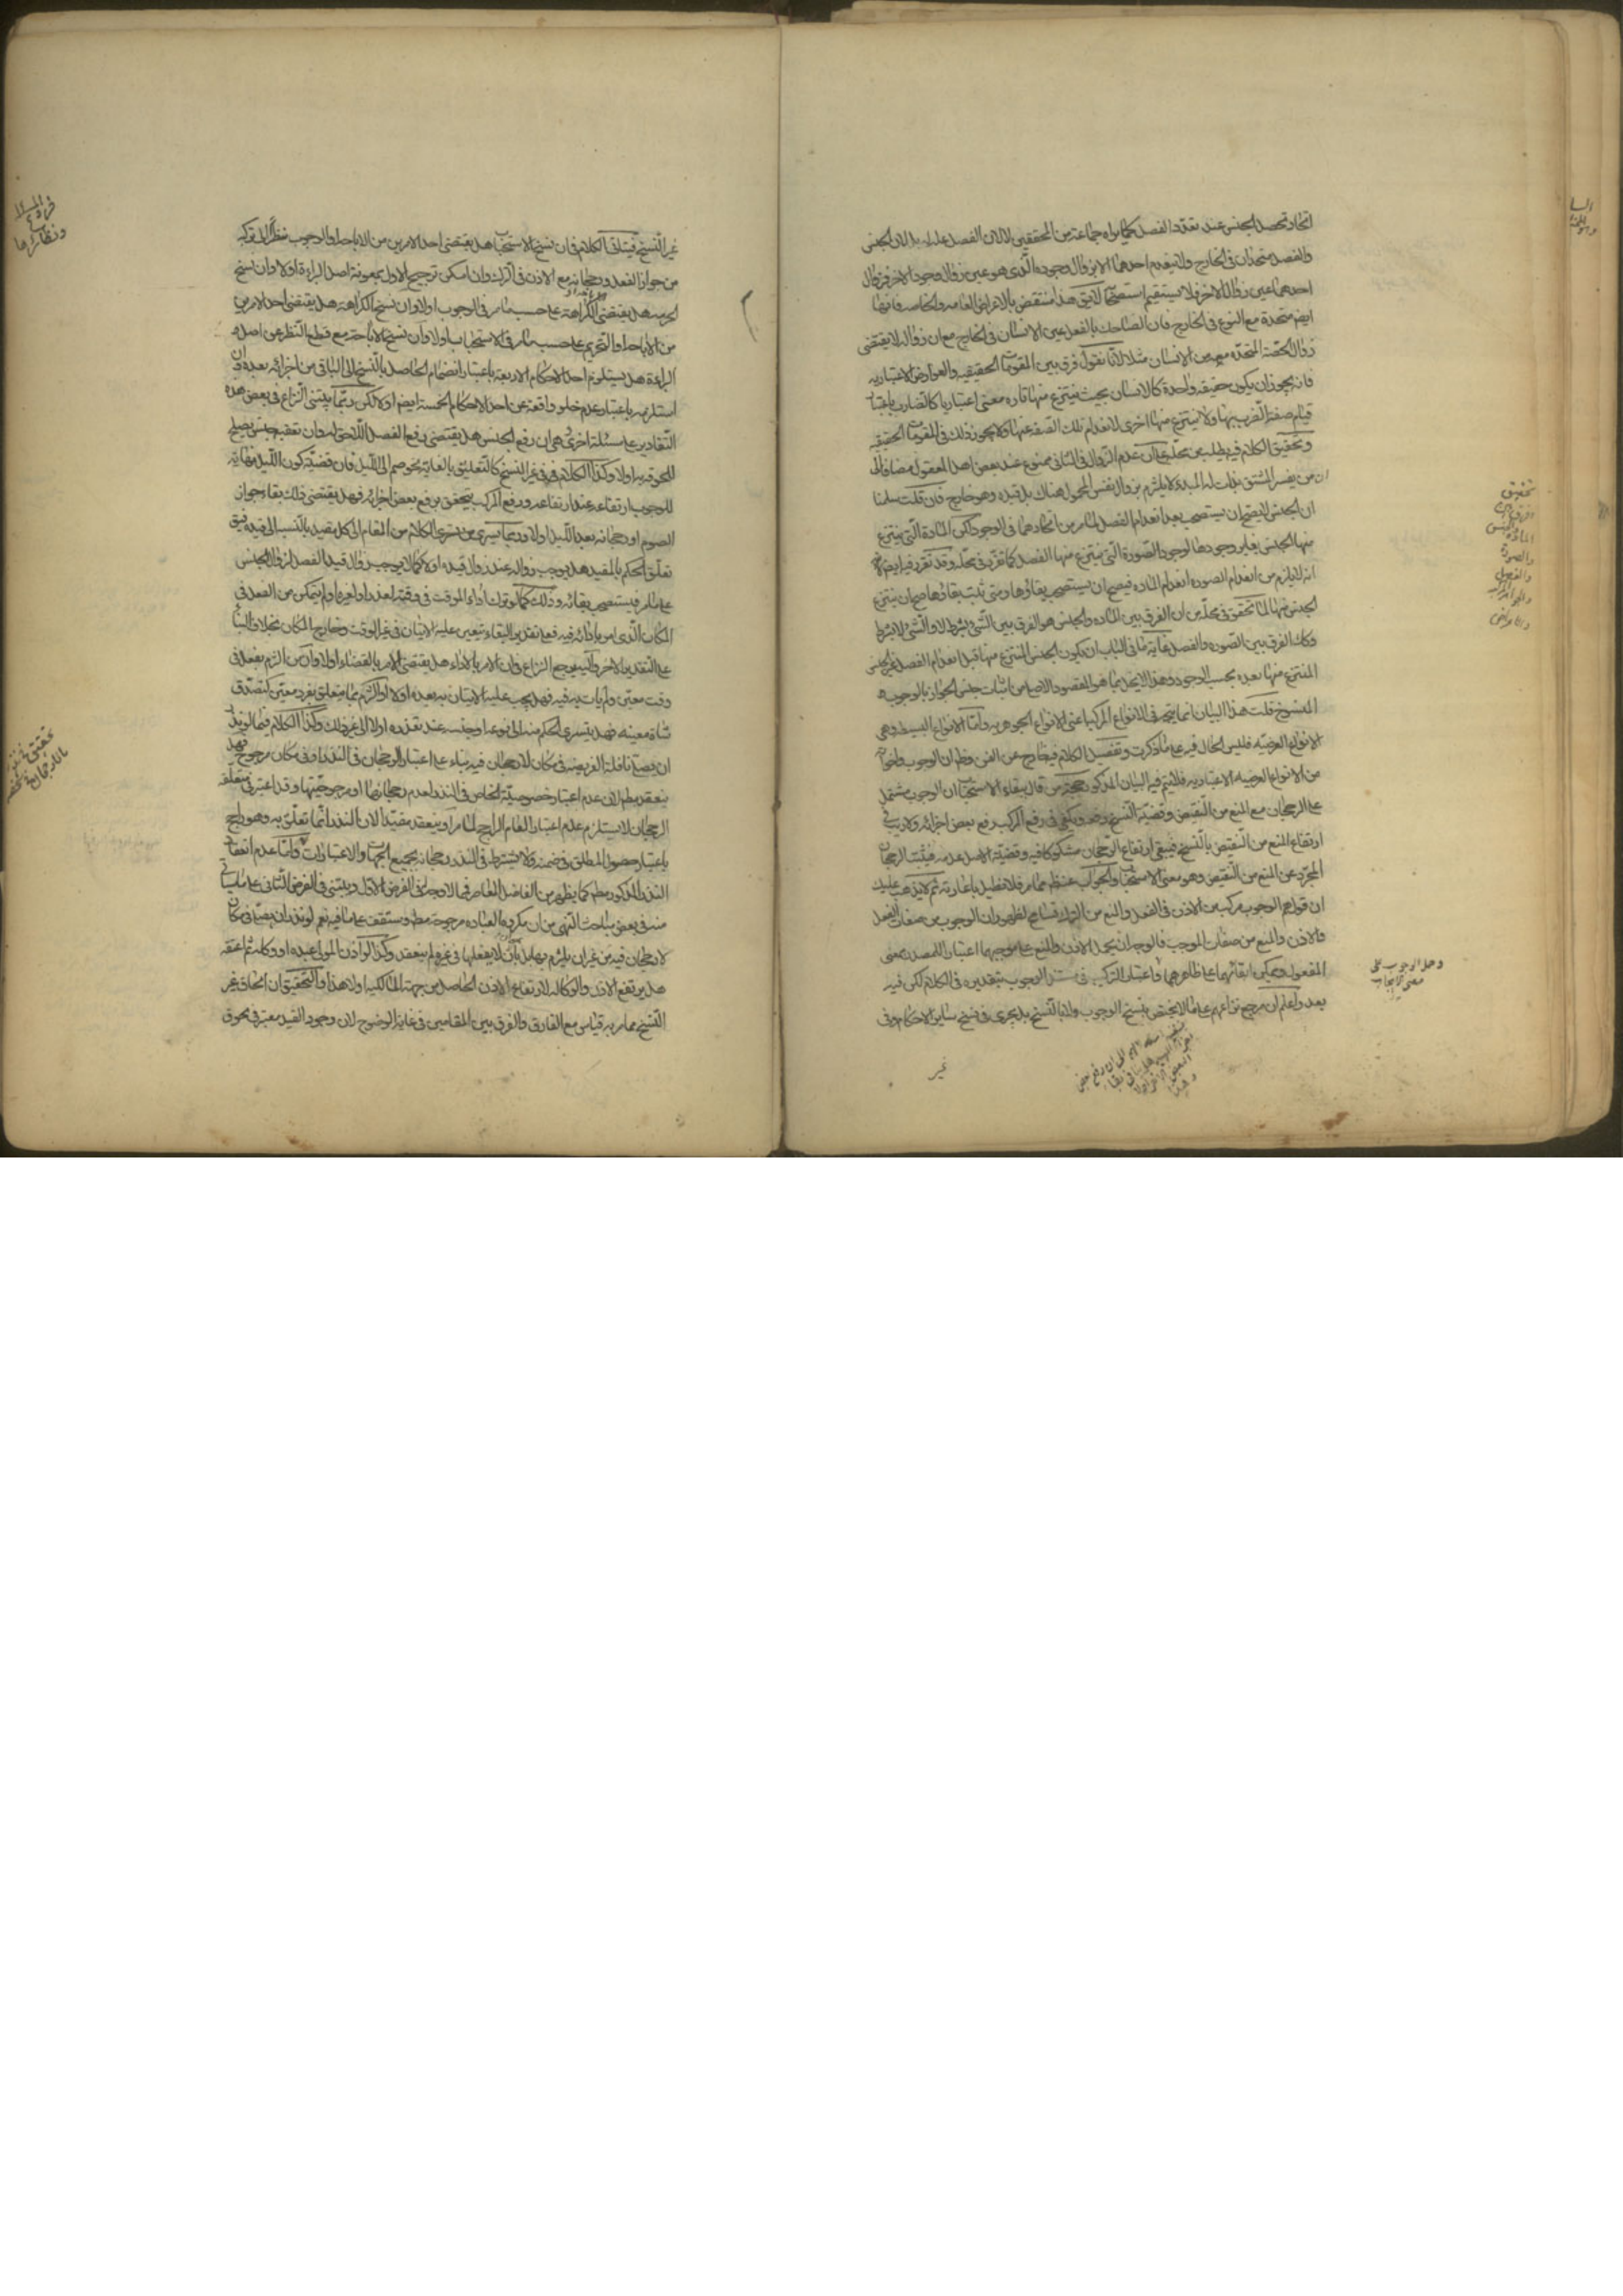 اتحاد تحصل الجنس عند تعدد الفصل كما يراه جماعة من المحققين لا لان الفصل علة له بل لان الجنس
والفصل متحدان في الخارج ولا ينعدم احدهما الا بزوال وجوده الذي هو عين زوال وجود الاخر فزوال
احدهما عين زوال الاخر فلا يستقيم استصحابه لا يق هذا منتقض بالاعراض العامه والخاصه فانها
ايضم متحدة مع النوع في الخارج فان الضاحك بالفعل عين الانسان في الخارج مع ان زواله لا يقتضى
زوال الحصة المتحدة معه من الانسان مثلا لانا نقول فرق بين المقومات الحقيقيه والعوارض الاعتباريه
فانه يجوز ان يكون حقيقه واحدة كالانسان بحيث ينتزع منها تارة معنى اعتباريا كالضارب باعتبار
قيام صفة الضرب بها ولا ينتزع منها اخرى لانعدام تلك الصفة عنها ولا يجوز ذلك في المقومات الحقيقيه
وتحقيق الكلام فيه يطلب من محله على ان عدم الزوال في الثاني ممنوع عند بعض اهل المعقول مضافا الى
ان من يفسر المشتق بذات له المبدء لا يلتزم بزوال نفس المحمول هناك بل قيده وهو خارج فان قلت سلمنا
ان الجنس لا يصح ان يستصحب بعد انعدام الفصل لما مر من اتحادهما في الوجود لكن المادة التي ينتزع
منها الجنس يغاير وجودها لوجود الصورة التي ينتزع منها الفصل كما تقرر في محله وقد تقرر فيه ايضم
انه لا يلزم من انعدام الصوره انعدام الماده فيصح ان يستصحب بقاؤها ومتى ثبت بقاؤها صح ان ينتزع
الجنس منها لما تحقق في محله من ان الفرق بين الماده والجنس هو الفرق بين الشئ بشرط لا والشئ لا بشرط
وكذا الفرق بين الصوره والفصل غاية ما في الباب ان يكون الجنس المنتزع منها قبل انعدام الفصل غير الجنس
المنتزع منها بعده بحسب الوجود وهذا لا يخل بما هو المقصود الاصلي من اثبات جنس الجواز بالوجوب
المنسوخ قلت هذا البيان انما يتم في الانواع المركبة اعنى الانواع الجوهريه واما الانواع البسيطه وهى
الانواع العرضيه فليس الحال فيه على ما ذكرت وتفصيل الكلام فيه خارج عن الفن وظ ان الوجوب واخواته
من الانواع العرضيه الاعتباريه فلا يتم فيه البيان المذكور حجة من قال ببقاء الاستحباب ان الوجوب مشتمل
على الرجحان مع المنع من النقيض وقضية النسخ رفعه ويكفى في رفع المركب رفع بعض اجزائه ولا ريب في
ارتفاع المنع من النقيض بالنسخ فيبقى ارتفاع الرجحان مشكوكا فيه وقضية الاصل عدمه فيثبت الرجحان
المجرد عن المنع من النقيض وهو معنى الاستحباب والجواب عنه ظ مما مر فلا نطيل باعادته ثم لا يذهب عليك
ان قولهم الوجوب مركب من الاذن في الفعل والمنع من الترك تسامح لظهور ان الوجوب من صفات الفعل
والاذن والمنع من صفات الموجب فالوجه ان يحمل الاذن والمنع على موجبهما اعتبارا للمصدر بمعنى
المفعول ويمكن ابقائهما على ظاهرهما واعتبار التركيب في مبدء الوجوب بتقديره في الكلام لكن فيه
بعد واعلم ان مرجع نزاعهم على ما لا يختص بنسخ الوجوب ولا بالنسخ بل يجرى في نسخ ساير الاحكام وفى
غير
تحقيق
الفرق بين
المادة والجنس
والصورة
والفصل
وحمل الوجوب على
معنى الايجاب
غير النسخ فيتاتى الكلام في ان نسخ الاستحباب هل يقتضى احد الامرين من الاباحة والوجوب نظرا الى تركبه
من جواز الفعل ورجحانه مع الاذن في الترك وان امكن ترجيح الاول بمعونة اصل البرائة اولا وان نسخ
الحرمه هل يقتضى الكراهة على حسب ما مر في الوجوب اولا وان نسخ الكراهة هل يقتضى احد الامرين
من الاباحة والتحريم على حسب ما مر في الاستحباب اولا وان نسخ الاباحة مع قطع النظر عن اصل
البراءة هل يستلزم احد الاحكام الاربعة باعتبار انضمام الحاصل بالنسخ الى الباقى من اجزائه بعده وان
استلزمه باعتبار عدم خلو واقعة عن احد الاحكام الخمسة ايضم اولا لكن ربما يبتنى النزاع في بعض هذه
التقادير على مسئلة اخرى هى ان رفع الجنس هل يقتضى رفع الفصل اللاحق له وان تعقبه جنس يصلح
للحوقه به اولا وكذا الكلام في غير النسخ كالتعليق بالغاية نحو صم الى الليل فان قضية كون الليل غاية
للوجوب ارتفاعه عندها ورفع المركب يتحقق برفع بعض اجزائه فهل يقتضى ذلك بقاء جواز
الصوم او رجحانه بعد الليل اولا وربما يسرى الكلام من المقام الى كل مقيد بالنسبة الى قيده فيق
تعلق الحكم بالمقيد هل يوجب زواله عند زوال قيده اولا كما لا يوجب زوال قيد الفصل لزوال الجنس
على ما مر فيستصحب بقائه وذلك كما لو ترك اداء الموقت في وقته لعذر او لغيره او لم يتمكن من الفعل في
المكان الذى امر بادائه فيه فعلى تقدير البقاء يتعين عليه الاتيان في غير الوقت وخارج المكان بخلاف البناء
على التقدير الاخر واليه يرجع النزاع في ان الامر بالاداء هل يقتضى الامر بالقضاء اولا وان من التزم بفعل في
وقت معين ولم يات به فيه فهل يجب عليه الاتيان به بعده اولا او التزم بما يتعلق بفرد معين كتصدق
شاة معينه فهل يتسرى الحكم منه الى نوعه او جنسه عند تعذره اولا الى غير ذلك وكذا الكلام فيما لو نذر
ان يصلى نافلة الفريضه في مكان لا رجحان فيه بناء على اعتبار الرجحان في النذر او في مكان مرجوح فهل
ينعقد مطم لان عدم اعتبار خصوصية الخاص في النذر لعدم رجحانها او مرجوحيتها وقد اعتبر في متعلقه
الرجحان لا يستلزم عدم اعتبار العام الراجح لما مر او ينعقد مقيدا لان النذر انما تعلق به وهو راجح
باعتبار حصول المطلق في ضمنه ولا يشترط في النذر رجحانه بجميع الجهات والاعتبارات واما عدم انعقاد
النذر المذكور مطم كما يظهر من الفاضل المعاصر فمما لا وجه له في الفرض الاول ويبتنى في الفرض الثانى على ما ياتى
منه في بعض مباحث النهى من ان مكروه العباده مرجوحة مطم وستقف على ما فيه نعم لو نذر ان يصلى في مكان
لا رجحان فيه من غير ان يلتزم بها بل بان لا يفعلها في غيره لم ينعقد وكذا لو اذن المولى لعبده او وكله ثم اعتقه
هل يرتفع الاذن والوكاله لارتفاع الاذن الحاصل من جهة المالكيه اولا هذا والتحقيق ان الحاق غير
النسخ مما مر به قياس مع الفارق والفرق بين المقامين في غاية الوضوح لان وجود القيد معتبر في لحوق
فروع المسئلة
ونظائرها